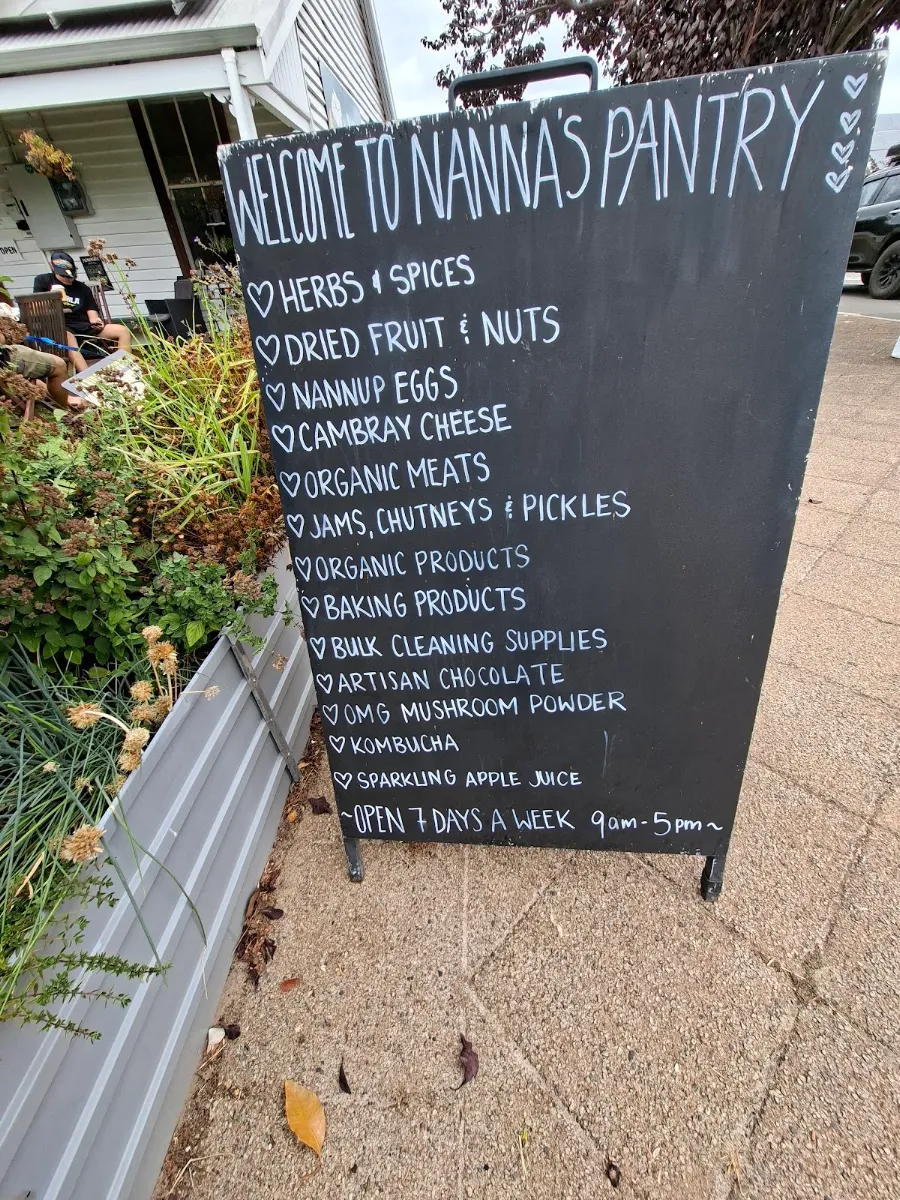 WELCOME TO NANNA'S PANTRY
HERBS & SPICES
DRIED FRUIT & NUTS
NANNUP EGGS
CAMBRAY CHEESE
ORGANIC MEATS
JAMS, CHUTNEYS & PICKLES
ORGANIC PRODUCTS
BAKING PRODUCTS
BULK CLEANING SUPPLIES
ARTISAN CHOCOLATE
OMG MUSHROOM POWDER
KOMBUCHA
SPARKLING APPLE JUICE
~OPEN 7 DAYS A WEEK 9am-5pm~
OPEN